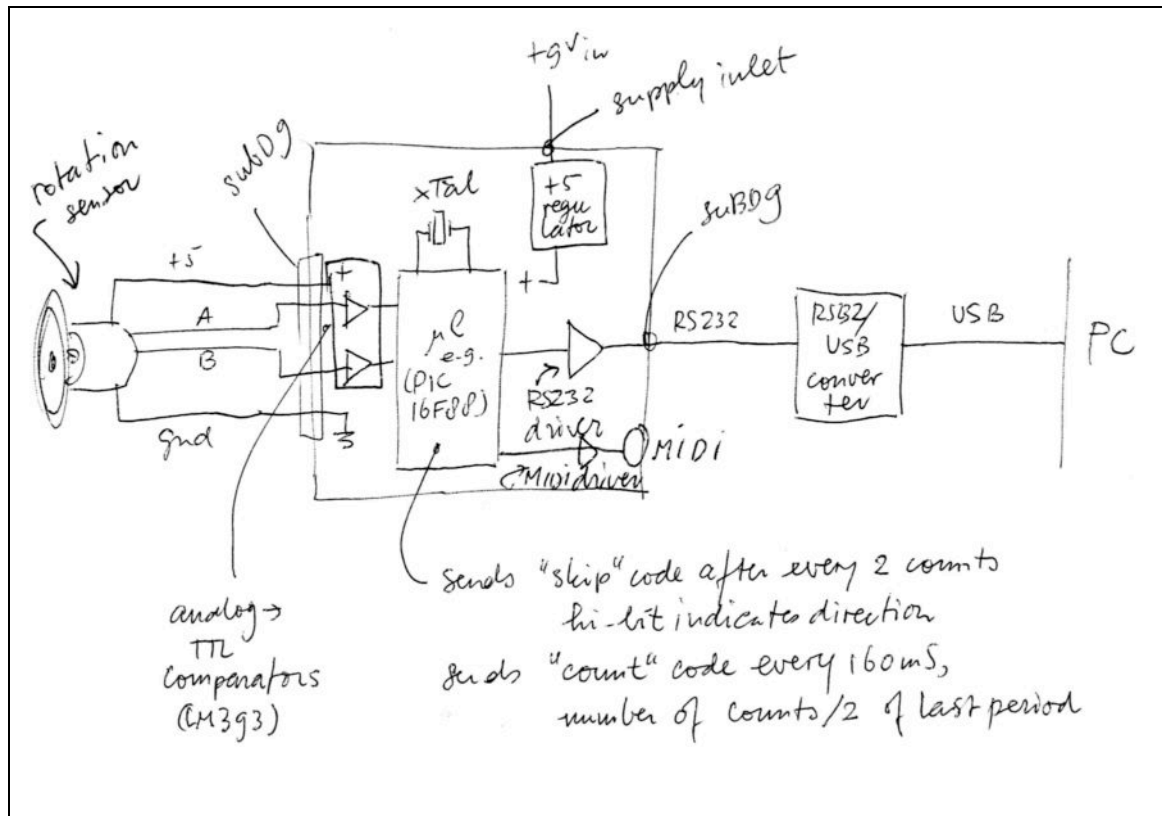 +9Vin
supply inlet
rotation
sensor
subD9
xTal
+5
regu
lator
suBD9
+5
+
+
A
B
gnd
μC
e.g.
(PIC
16F88)
RS232
driver
RS232
RSB2/
USB
conver
ter
USB
PC
MiDi
Midi driver
analog→
TTL
comparators
(LM393)
sends "skip" code after every 2 counts
hi-bit indicates direction
sends "count" code every 160mS,
number of counts/2 of last period